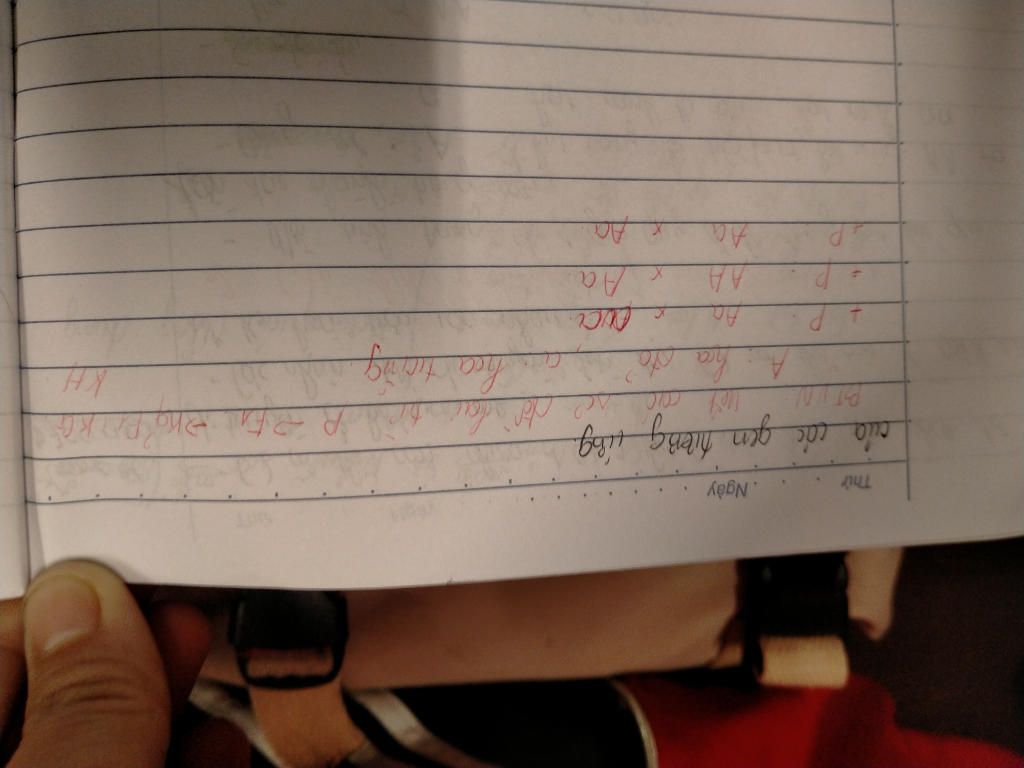 Thứ Ngày
của các gen tương ứng
BTVN: Viết các sơ đồ lai từ P → F1 → KQ F1 KG
KH
A: hoa đỏ, a: hoa trắng
+ P: Aa x aa
+ P: AA x Aa
+ P: Aa x Aa